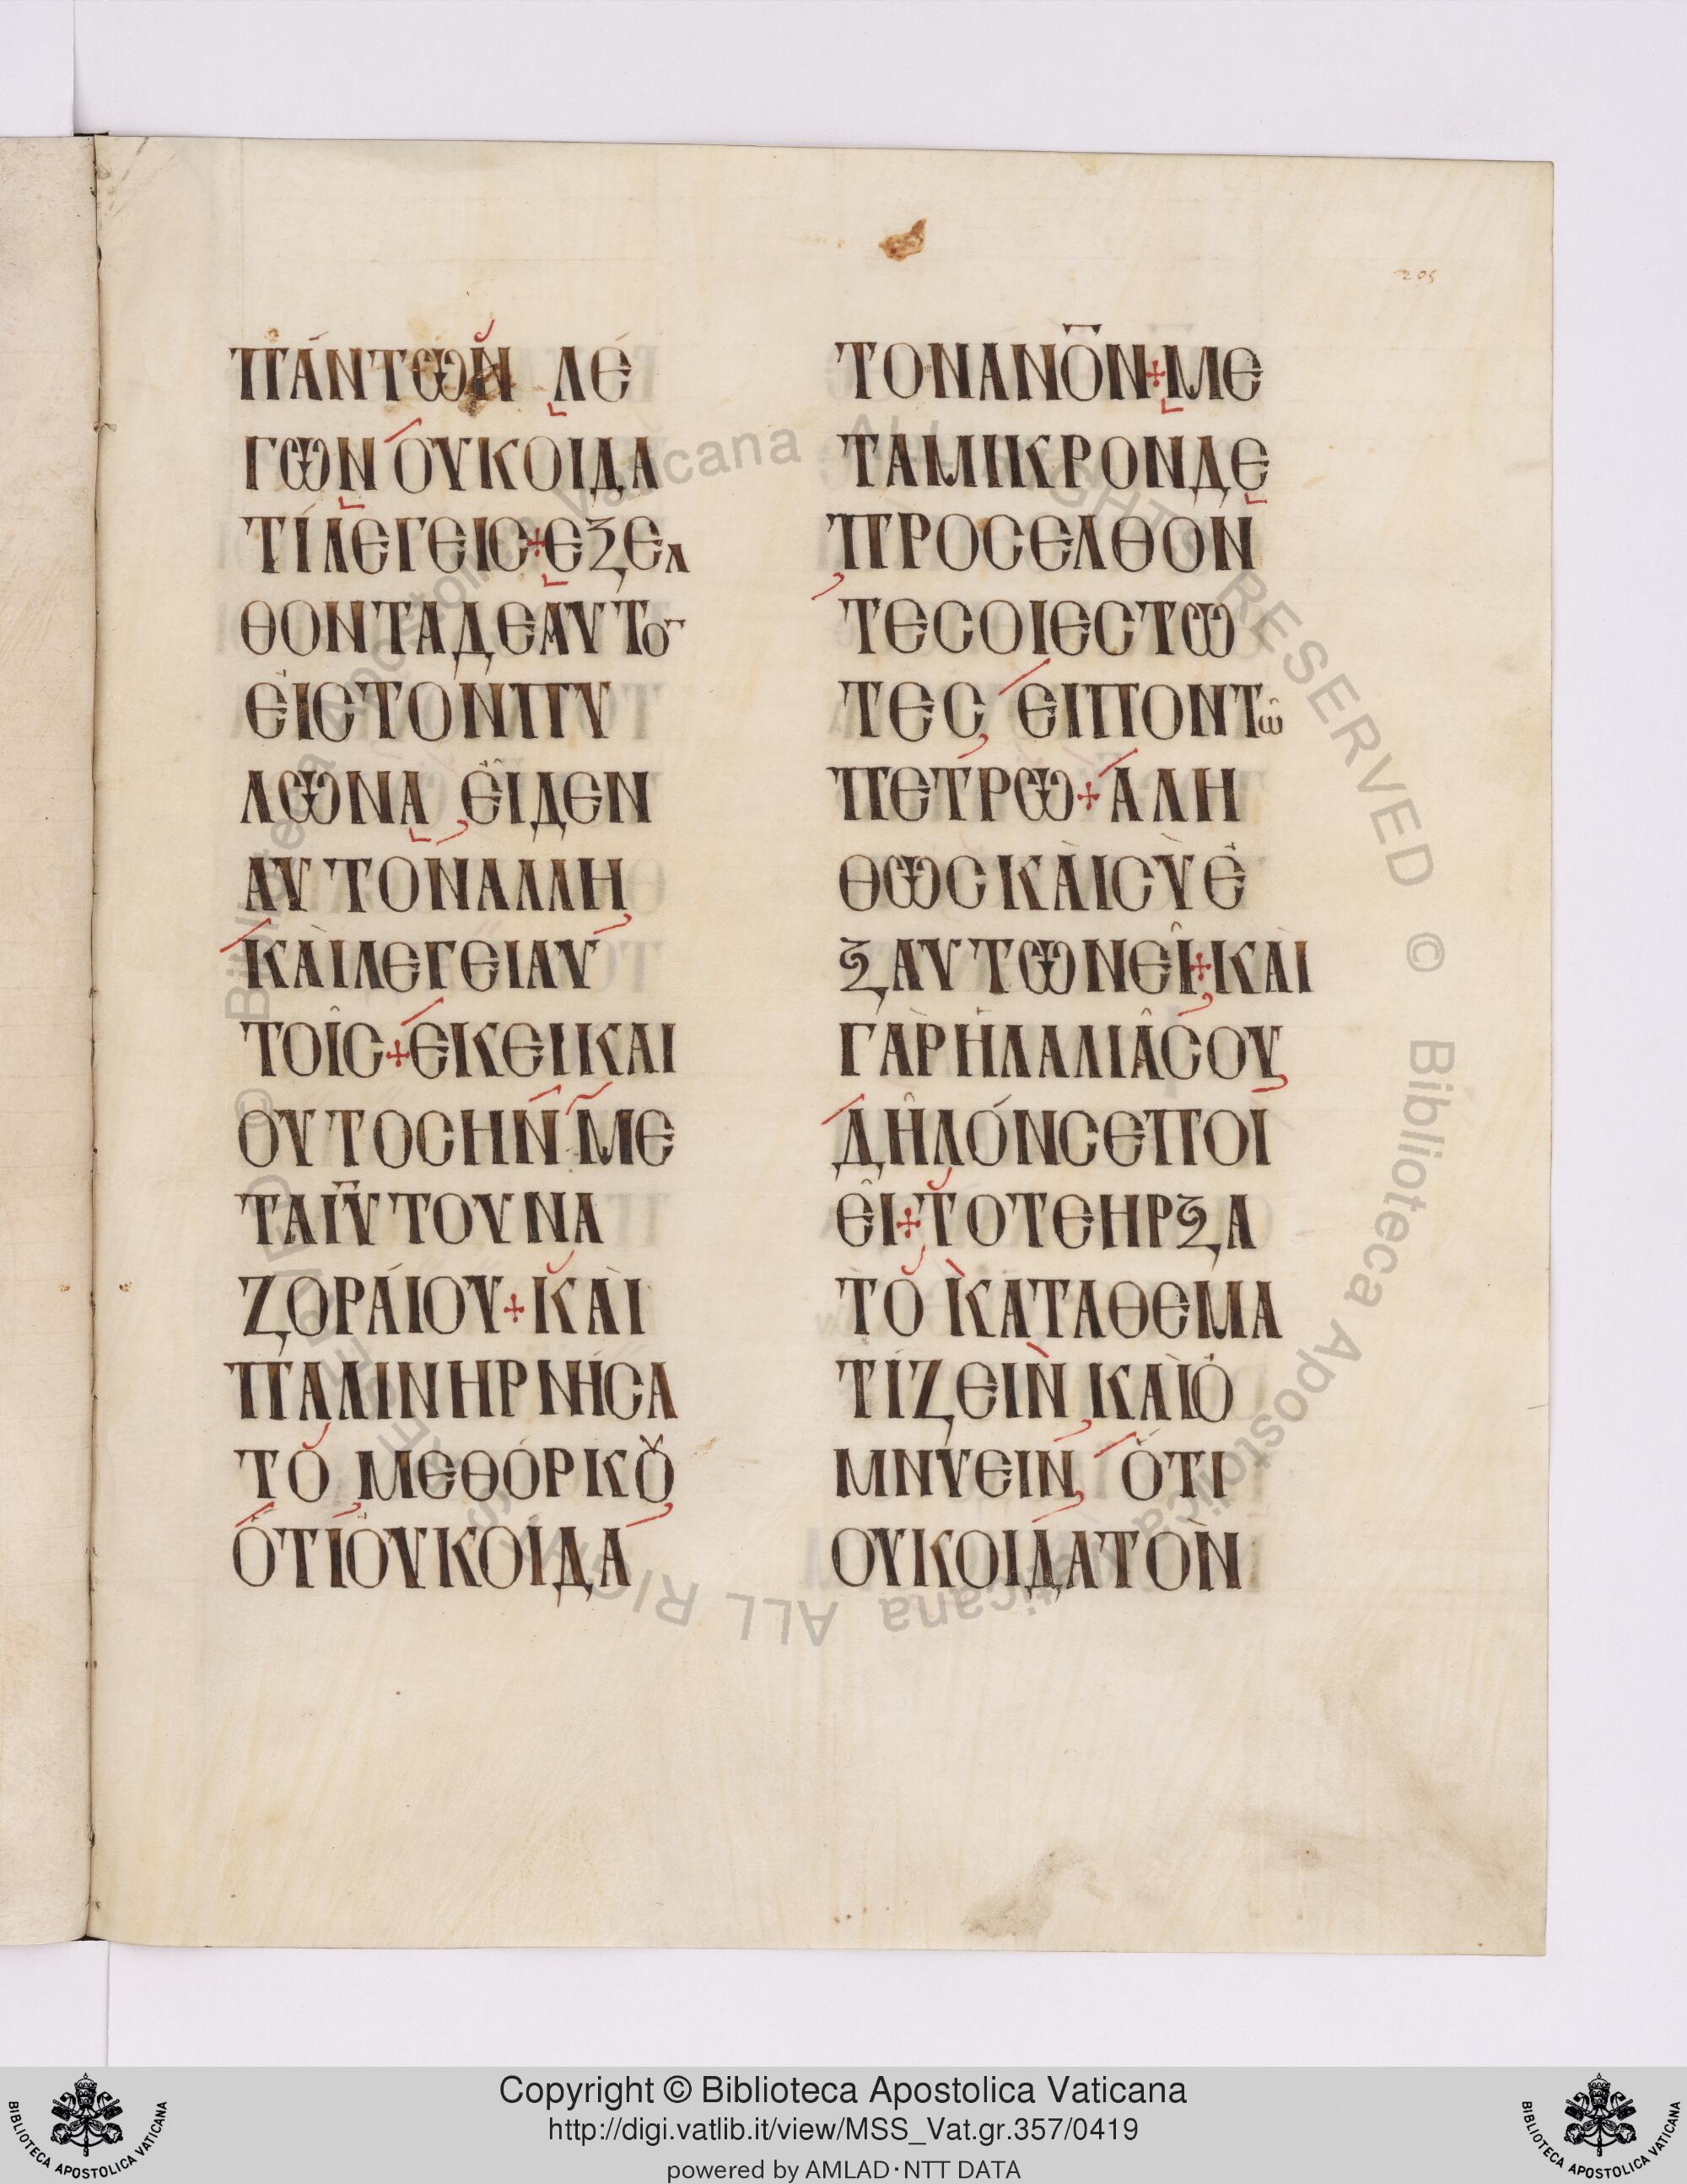 205
ΠΆΝΤΩΝ ΛΕ
ΓΩΝ ΟΥΚΟΙΔΑ
ΤΊΛΕΓΕΙC+ΕΞΕΛ
ΘΟΝΤΑΔΕΑΥΤΟ̅
ΕΙCΤΟΝΠΥ
ΛΩΝΑ ΕΙΔΕΝ
ΑΥΤΟΝΑΛΛΗ
ΚΑΙΛΕΓΕΙΑΥ
ΤΟΙC+ΕΚΕΙΚΑΙ
ΟΥΤΟCΗΝ ΜΕ
ΤΑΙ̅Υ̅ΤΟΥΝΑ
ΖΟΡΑΙΟΥ+ΚΑΙ
ΠΑΛΙΝΗΡΝΗCΑ
ΤΟ ΜΕΘΟΡΚȢ
ΟΤΙΟΥΚΟΙΔΑ
ΤΟΝΑΝΟ̅Ν+ΜΕ
ΤΑΜΙΚΡΟΝΔΕ
ΠΡΟCΕΛΘΟΝ
ΤΕCΟΙΕCΤΩ
ΤΕC ΕΙΠΟΝΤΩ
ΠΕΤΡΩ+ΑΛΗ
ΘΩCΚΑΙCΥΕ
ΞΑΥΤΩΝΕΙ+ΚΑΙ
ΓΑΡΗΛΑΛΙΑCΟΥ
ΔΗΛΟΝCΕΠΟΙ
ΕΙ+ΤΟΤΕΗΡΞΑ
ΤΟ ΚΑΤΑΘΕΜΑ
ΤΙΖΕΙΝ ΚΑΙΟ
ΜΝΥΕΙΝ ΟΤΙ
ΟΥΚΟΙΔΑΤΟΝ
© Biblioteca Apostolica Vaticana ALL RIGHTS RESERVED © Biblioteca Apostolica Vaticana ALL RIGHTS RESERVED
Copyright © Biblioteca Apostolica Vaticana
http://digi.vatlib.it/view/MSS_Vat.gr.357/0419
powered by AMLAD·NTT DATA
BIBLIOTECA APOSTOLICA VATICANA
BIBLIOTECA APOSTOLICA VATICANA